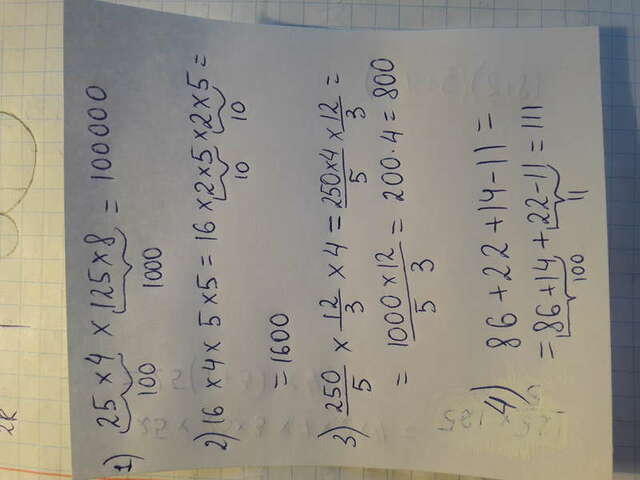 1) 25 × 4 × 125 × 8 = 100000
100 1000
2) 16 × 4 × 5 × 5 = 16 × 2 × 5 × 2 × 5 =
10 10
= 1600
3) 250/5 × 12/3 × 4 = 250×4/5 × 12/3 =
= 1000 × 12/5 3 = 200 · 4 = 800
4) 86 + 22 + 14 - 11 =
= 86 + 14 + 22 - 11 = 111
100 11